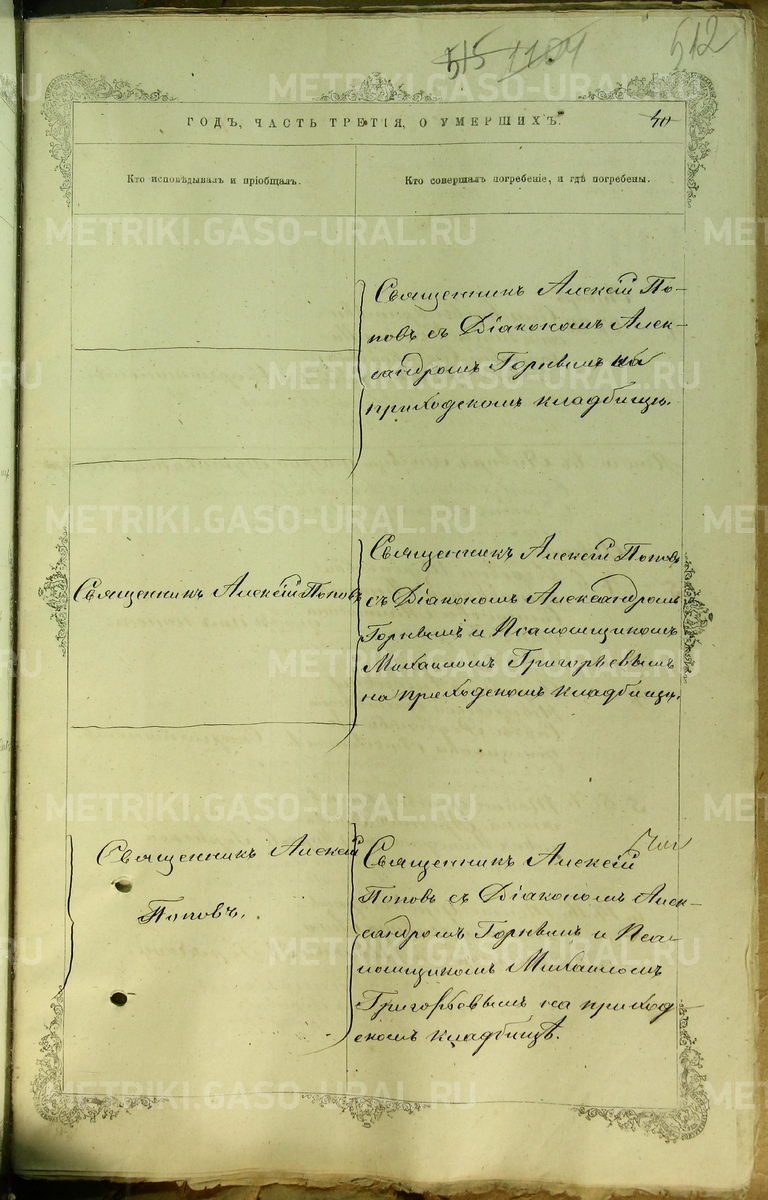 515 1104 512
ГОДЪ, ЧАСТЬ ТРЕТІЯ, О УМЕРШИХЪ.
Кто исповѣдывалъ и пріобщалъ.
Кто совершалъ погребеніе, и гдѣ погребены.
Священникъ Алексій По-
повъ съ Діакономъ Алек-
сандромъ Горнымъ на
приходскомъ кладбищѣ.
Священникъ Алексій Поповъ
Священникъ Алексій Поповъ
съ Діакономъ Александромъ
Горнымъ и Псаломщикомъ
Михаиломъ Григорьевымъ
на приходскомъ кладбищѣ.
Священникъ Алексій
Поповъ.
Священникъ Алексій
Поповъ съ Діакономъ Алек-
сандромъ Горнымъ и Пса-
ломщикомъ Михаиломъ
Григорьевымъ на приход
скомъ кладбищѣ.
METRIKI.GASO-URAL.RU